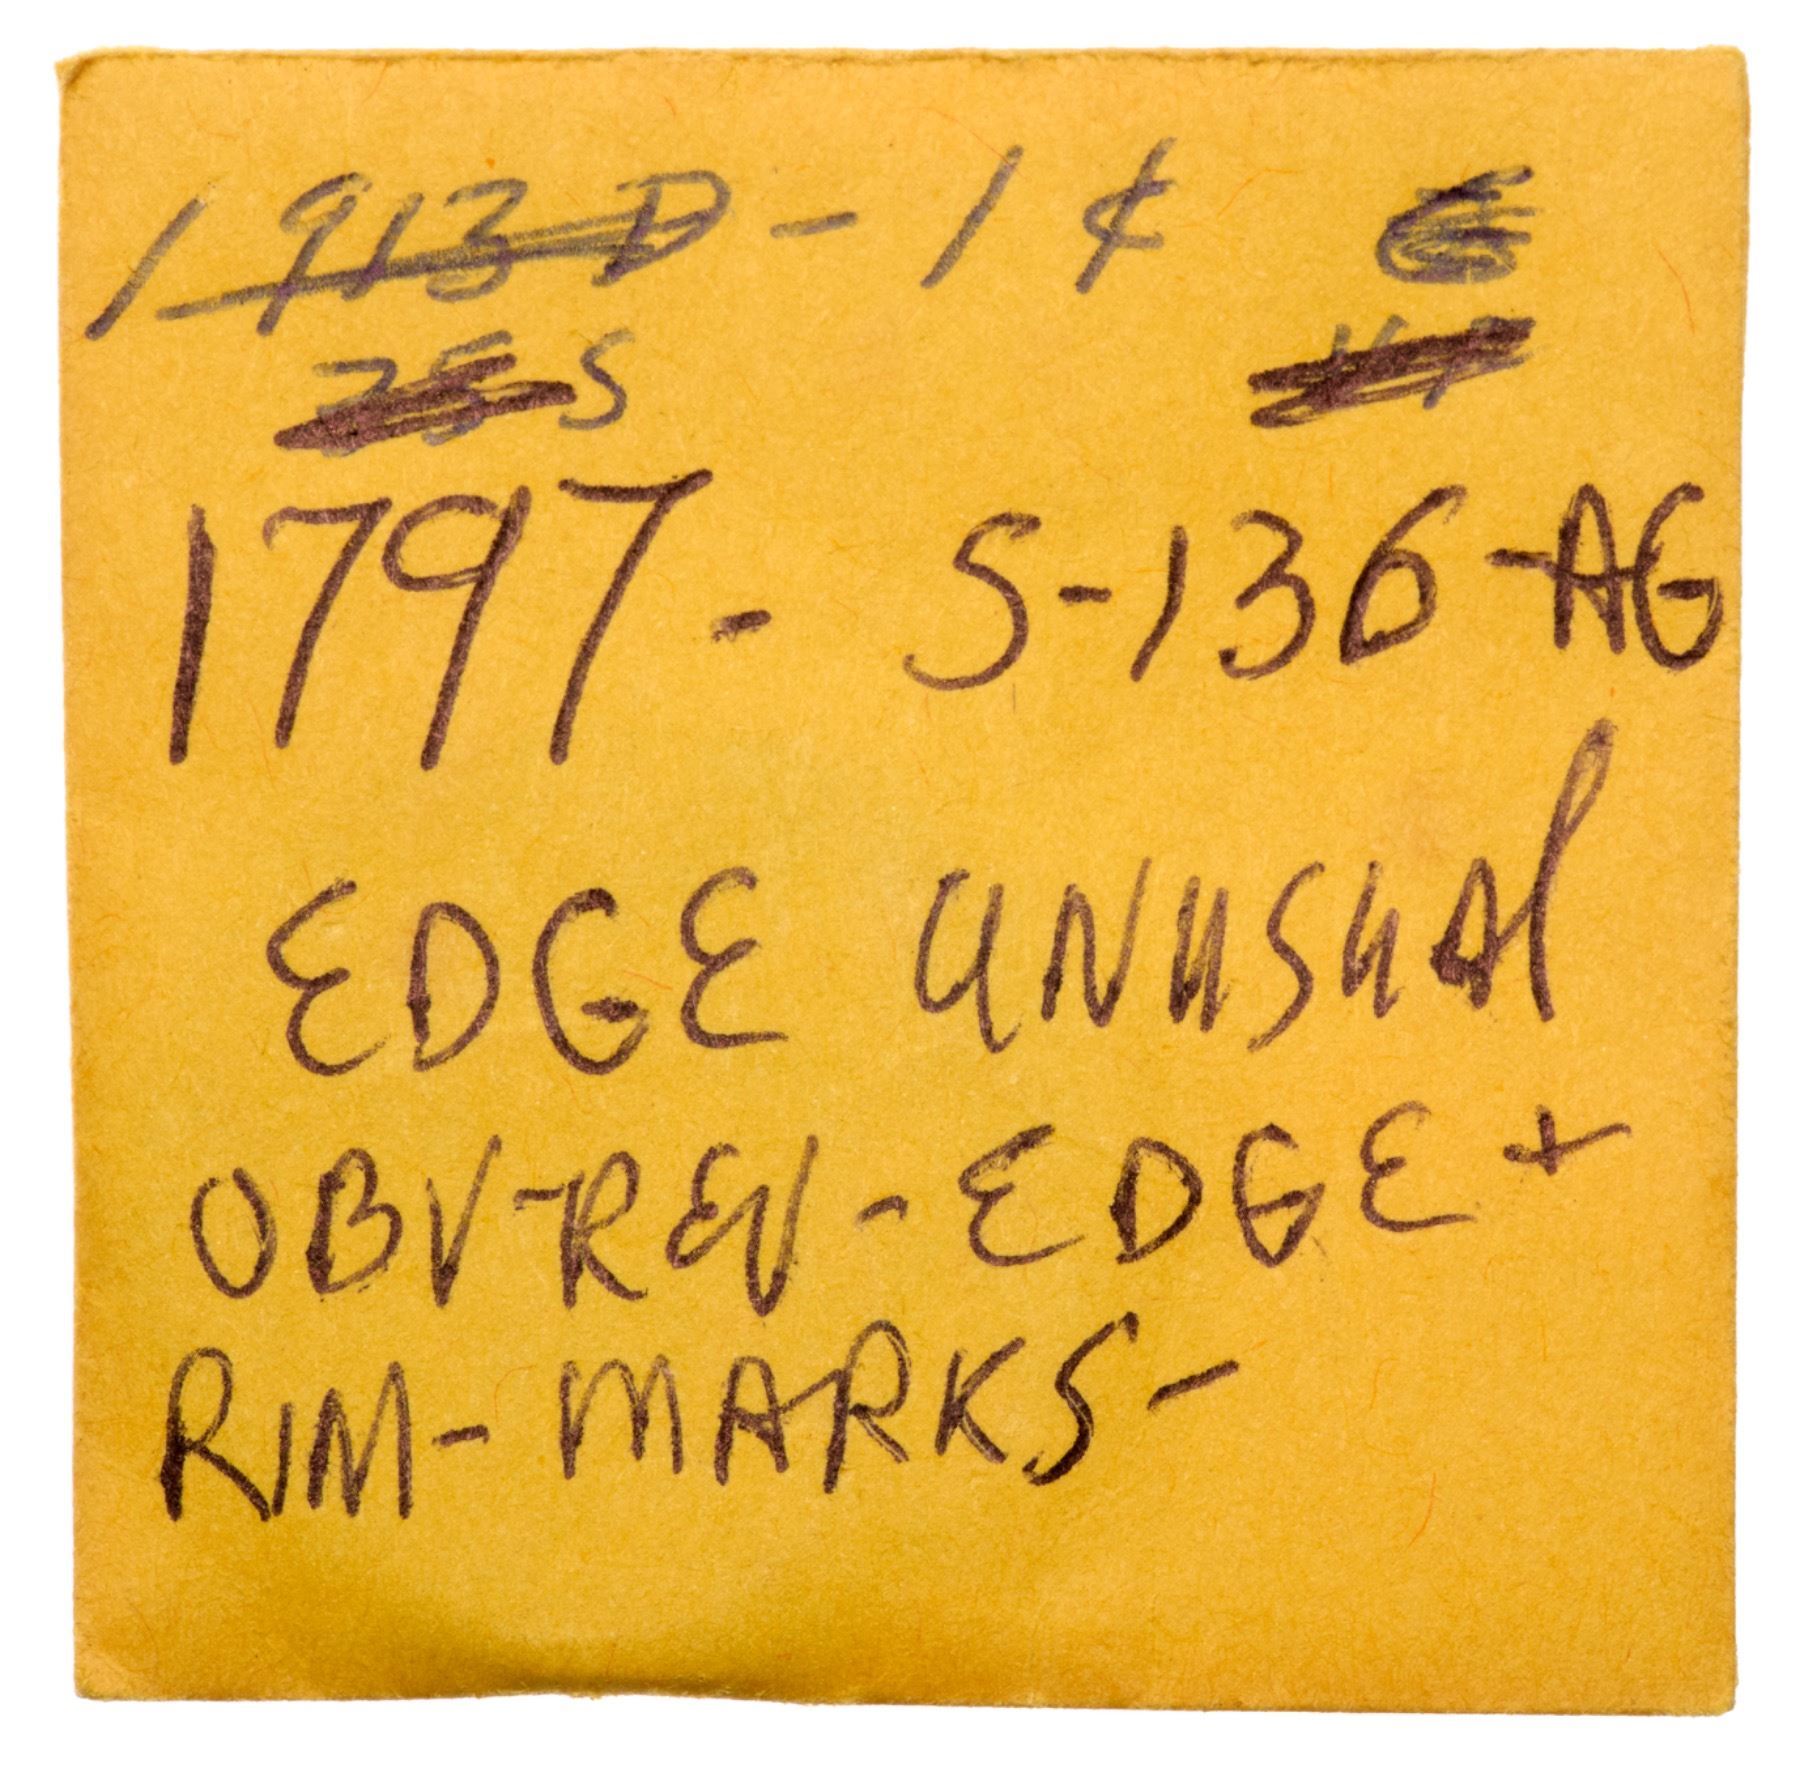 1913 D - 1 ¢
S
1797 - S-136-AG
EDGE UNUSUAL
OBV-REV-EDGE +
RIM-MARKS-